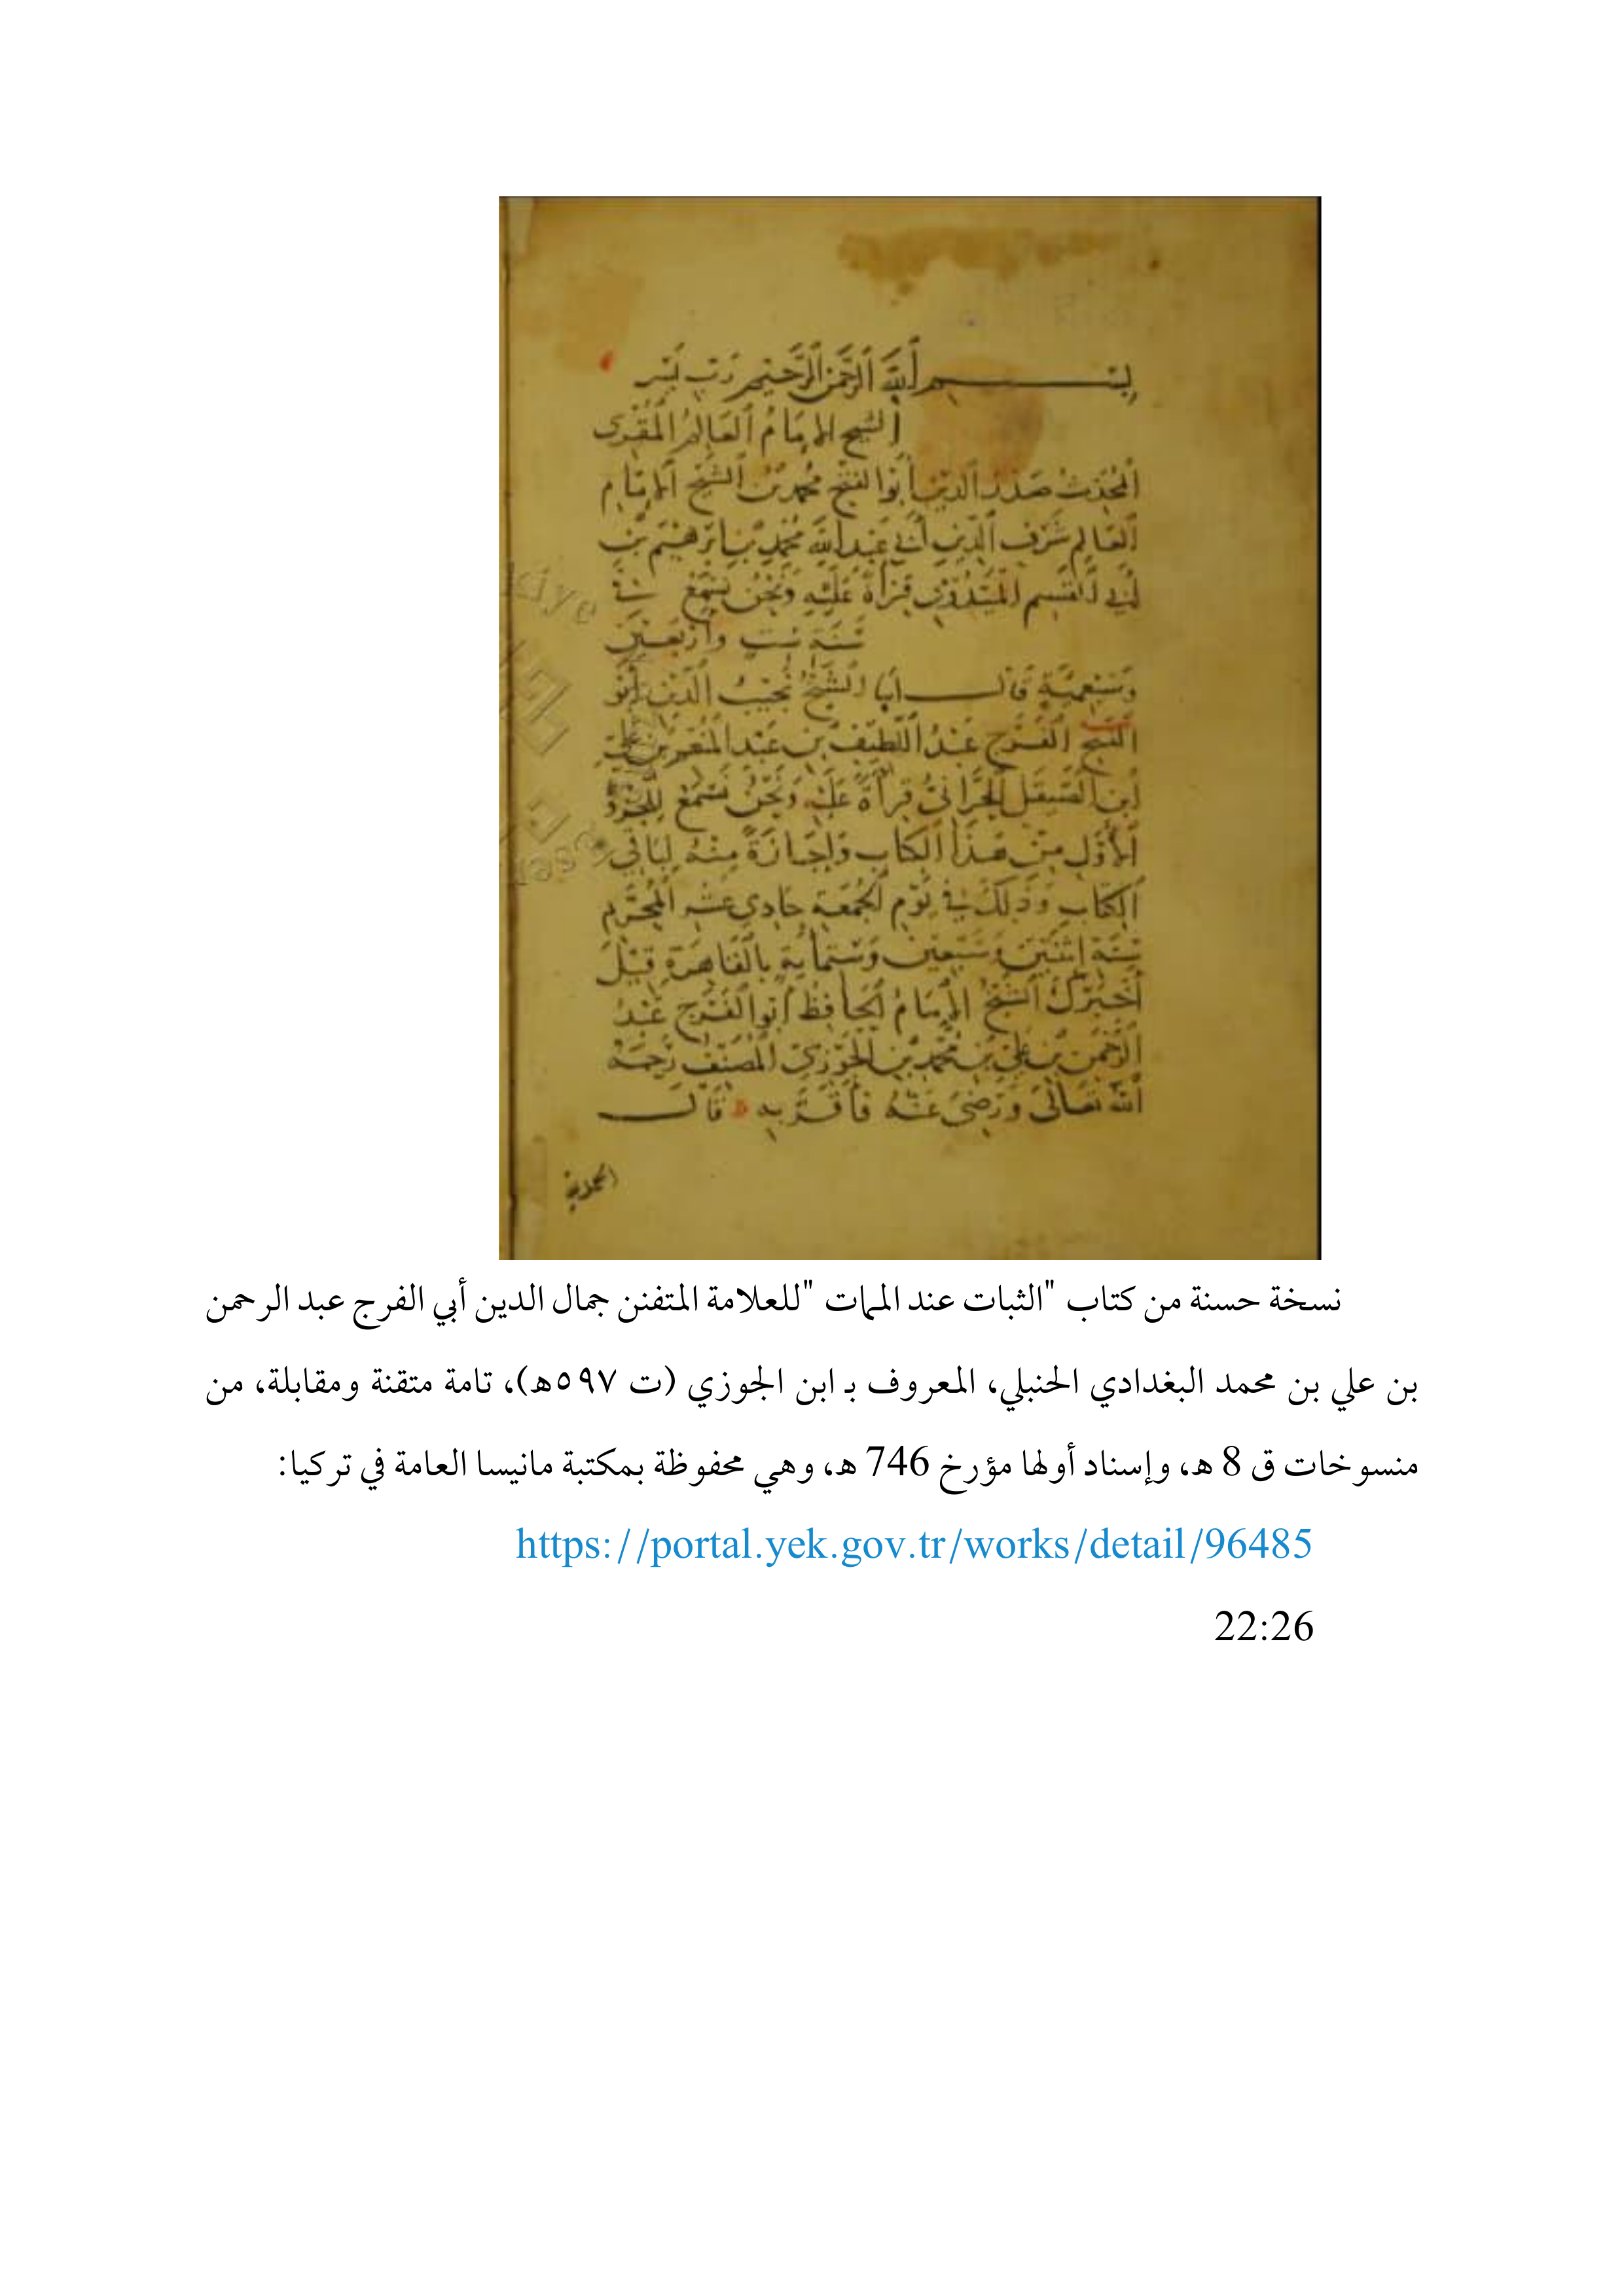 بسم الله الرحمن الرحيم رب يسر
الشيخ الإمام العالم المقرى
المحدث صدر الدين أبو الفتح محمد بن الشيخ الإمام
العالم شرف الدين أبي عبد الله محمد بن إبرهيم بن
أبي القسم الميدومي قراءة عليه ونحن نسمع في
سنة ست وأربعين
وسبعمية قال أبنا الشيخ نجيب الدين أبو
الفرج عبد اللطيف بن عبد المنعم بن علي
ابن الصيقل الحراني قراءة عليه ونحن نسمع للجزء
الأول من هذا الكتاب وإجازة منه لباقي
الكتاب وذلك في يوم الجمعة حادي عشر المحرم
سنة اثنتين وسبعين وستماية بالقاهرة قيل
أخبرك الشيخ الإمام الحافظ أبو الفرج عبد
الرحمن بن علي بن محمد بن الجوزي المصنف رحمه
الله تعالى ورضي عنه فأقر به قال
نسخة حسنة من كتاب "الثبات عند الممات "للعلامة المتفنن جمال الدين أبي الفرج عبد الرحمن
بن علي بن محمد البغدادي الحنبلي، المعروف بـ ابن الجوزي (ت ٥٩٧هـ)، تامة متقنة ومقابلة، من
منسوخات ق 8 هـ، وإسناد أولها مؤرخ 746 هـ، وهي محفوظة بمكتبة مانيسا العامة في تركيا:
https://portal.yek.gov.tr/works/detail/96485
22:26